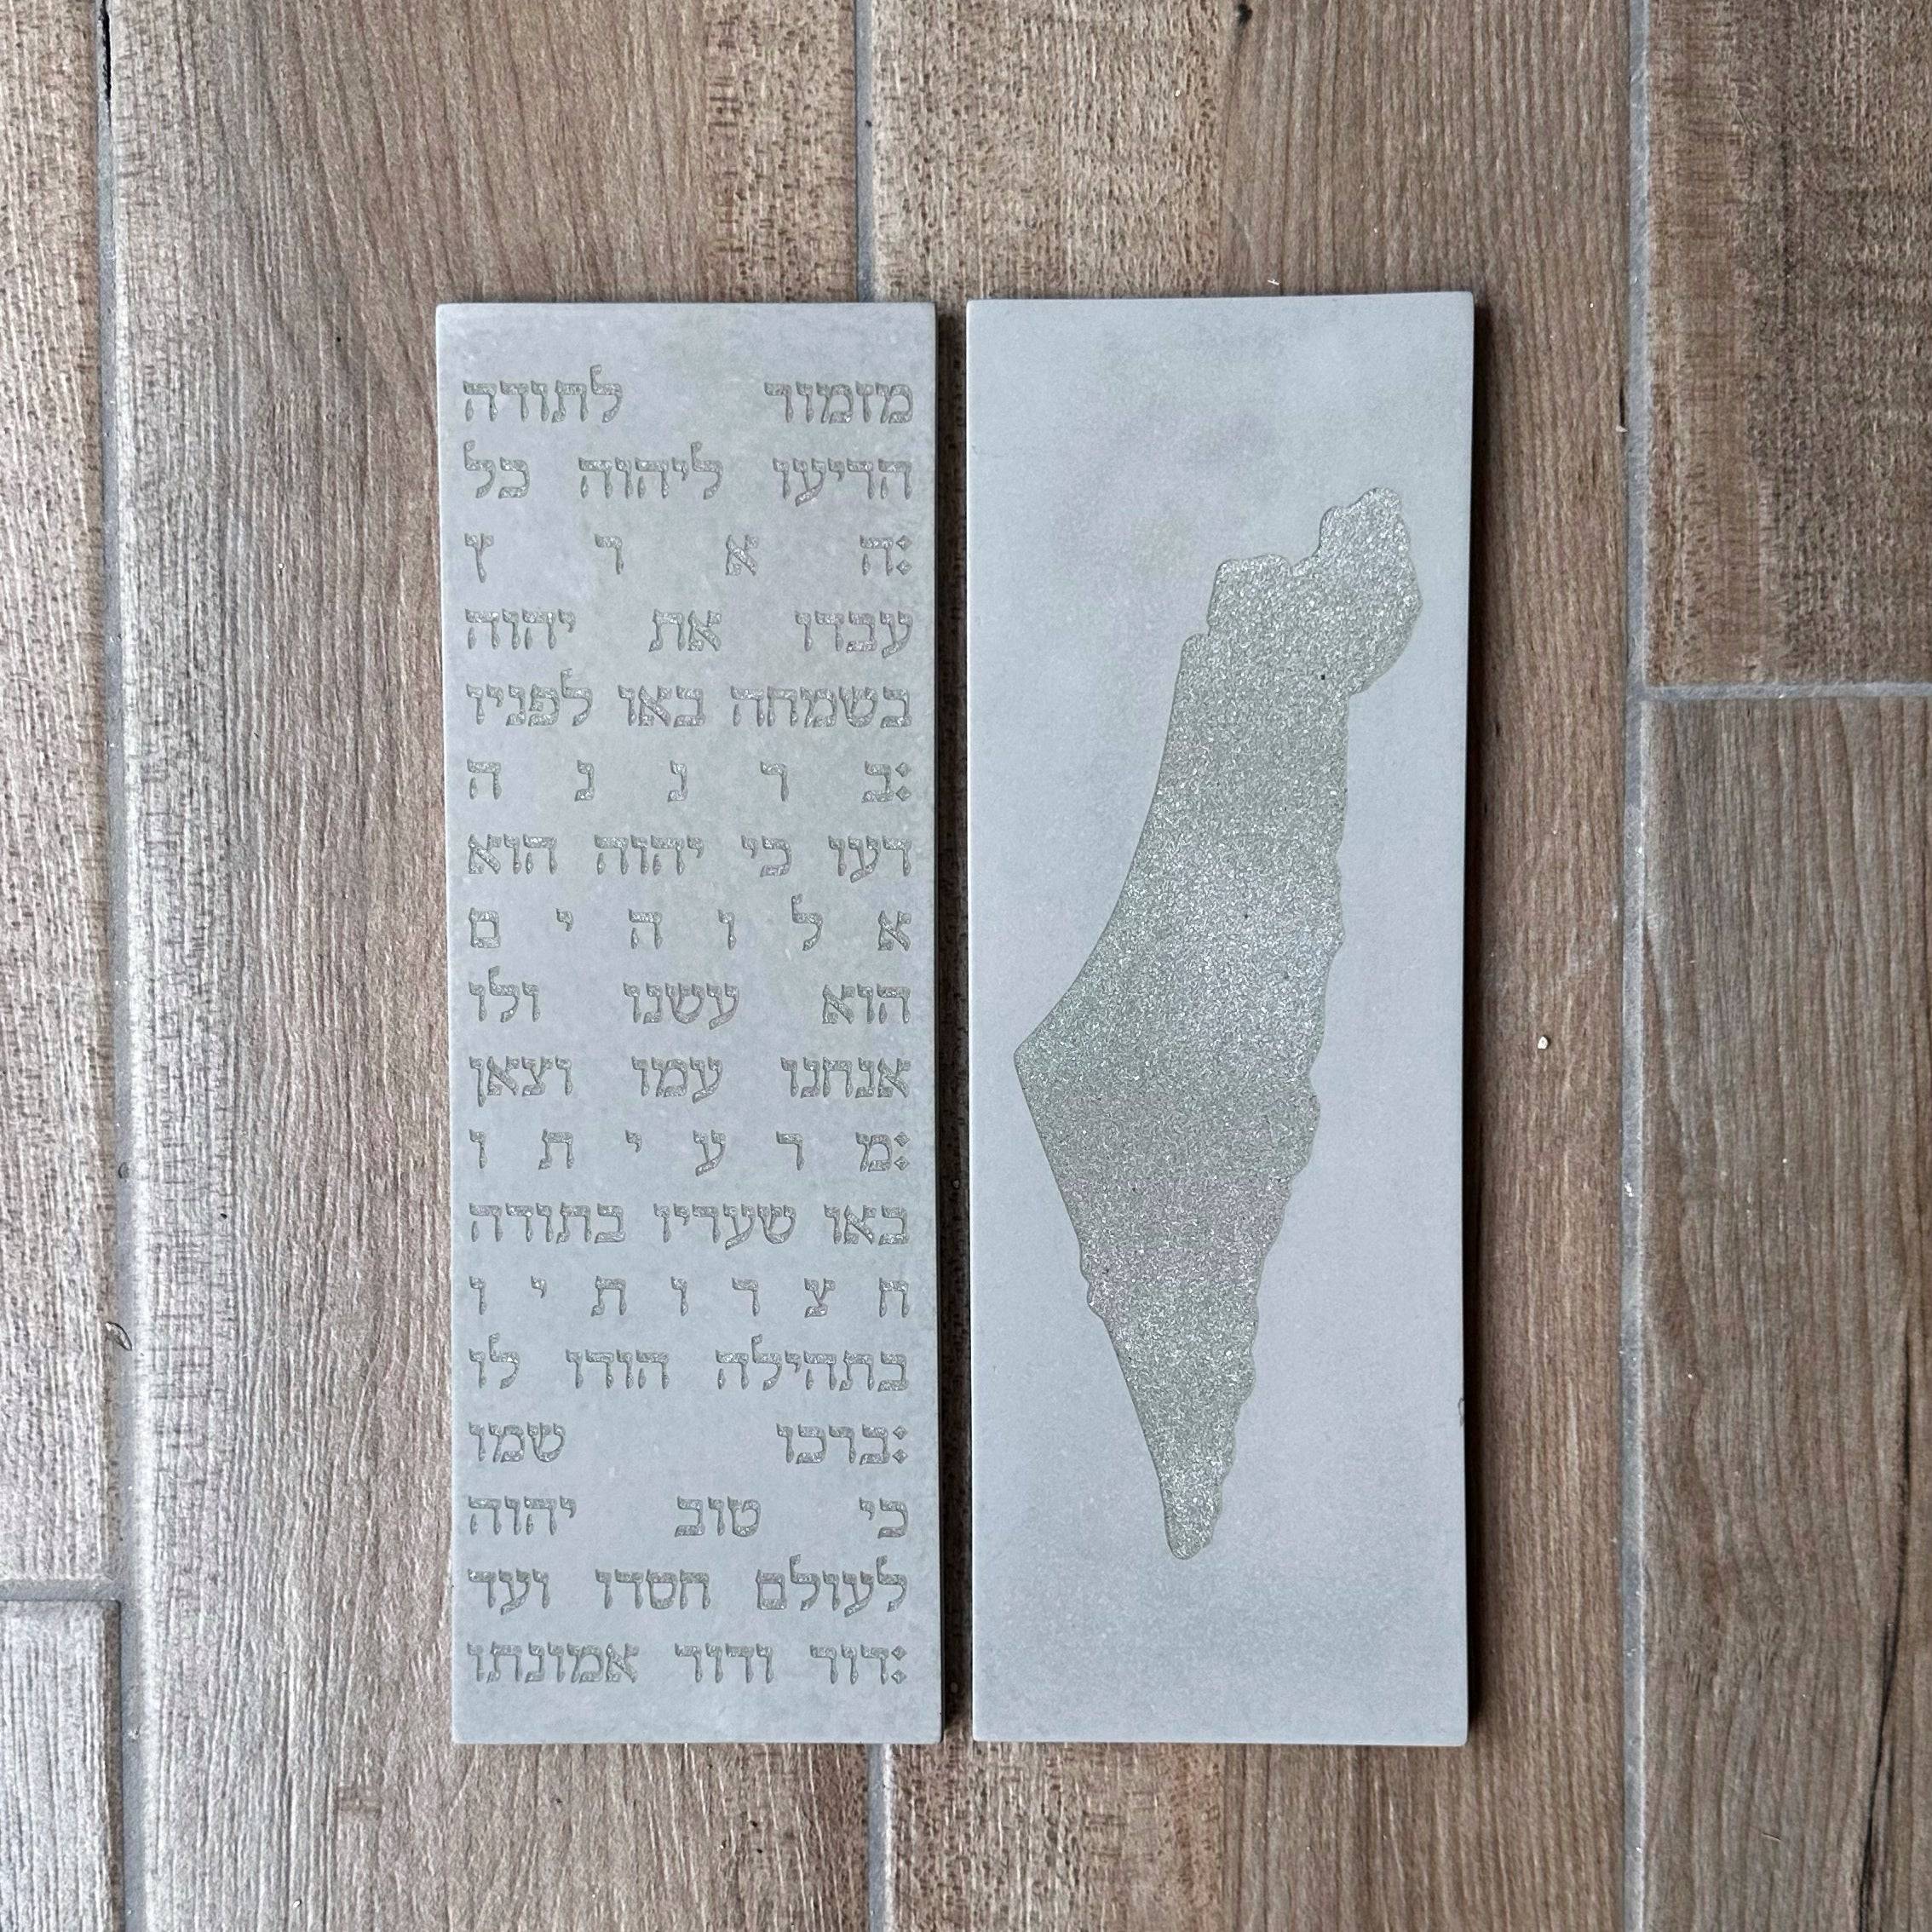 מזמור לתודה
הריעו ליהוה כל
:הארץ
עבדו את יהוה
בשמחה באו לפניו
:ברננה
דעו כי יהוה הוא
אלוהים
הוא עשנו ולו
אנחנו עמו וצאן
:מרעיתו
באו שעריו בתודה
חצרותיו
בתהילה הודו לו
:ברכו שמו
כי טוב יהוה
לעולם חסדו ועד
:דור ודור אמונתו